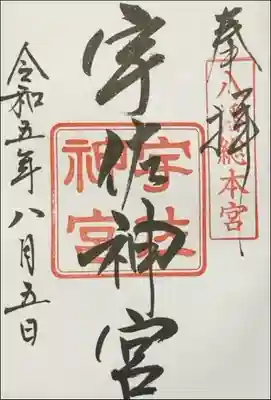 奉拝
八幡総本宮
宇佐神宮
宇佐
神宮
令和五年八月五日